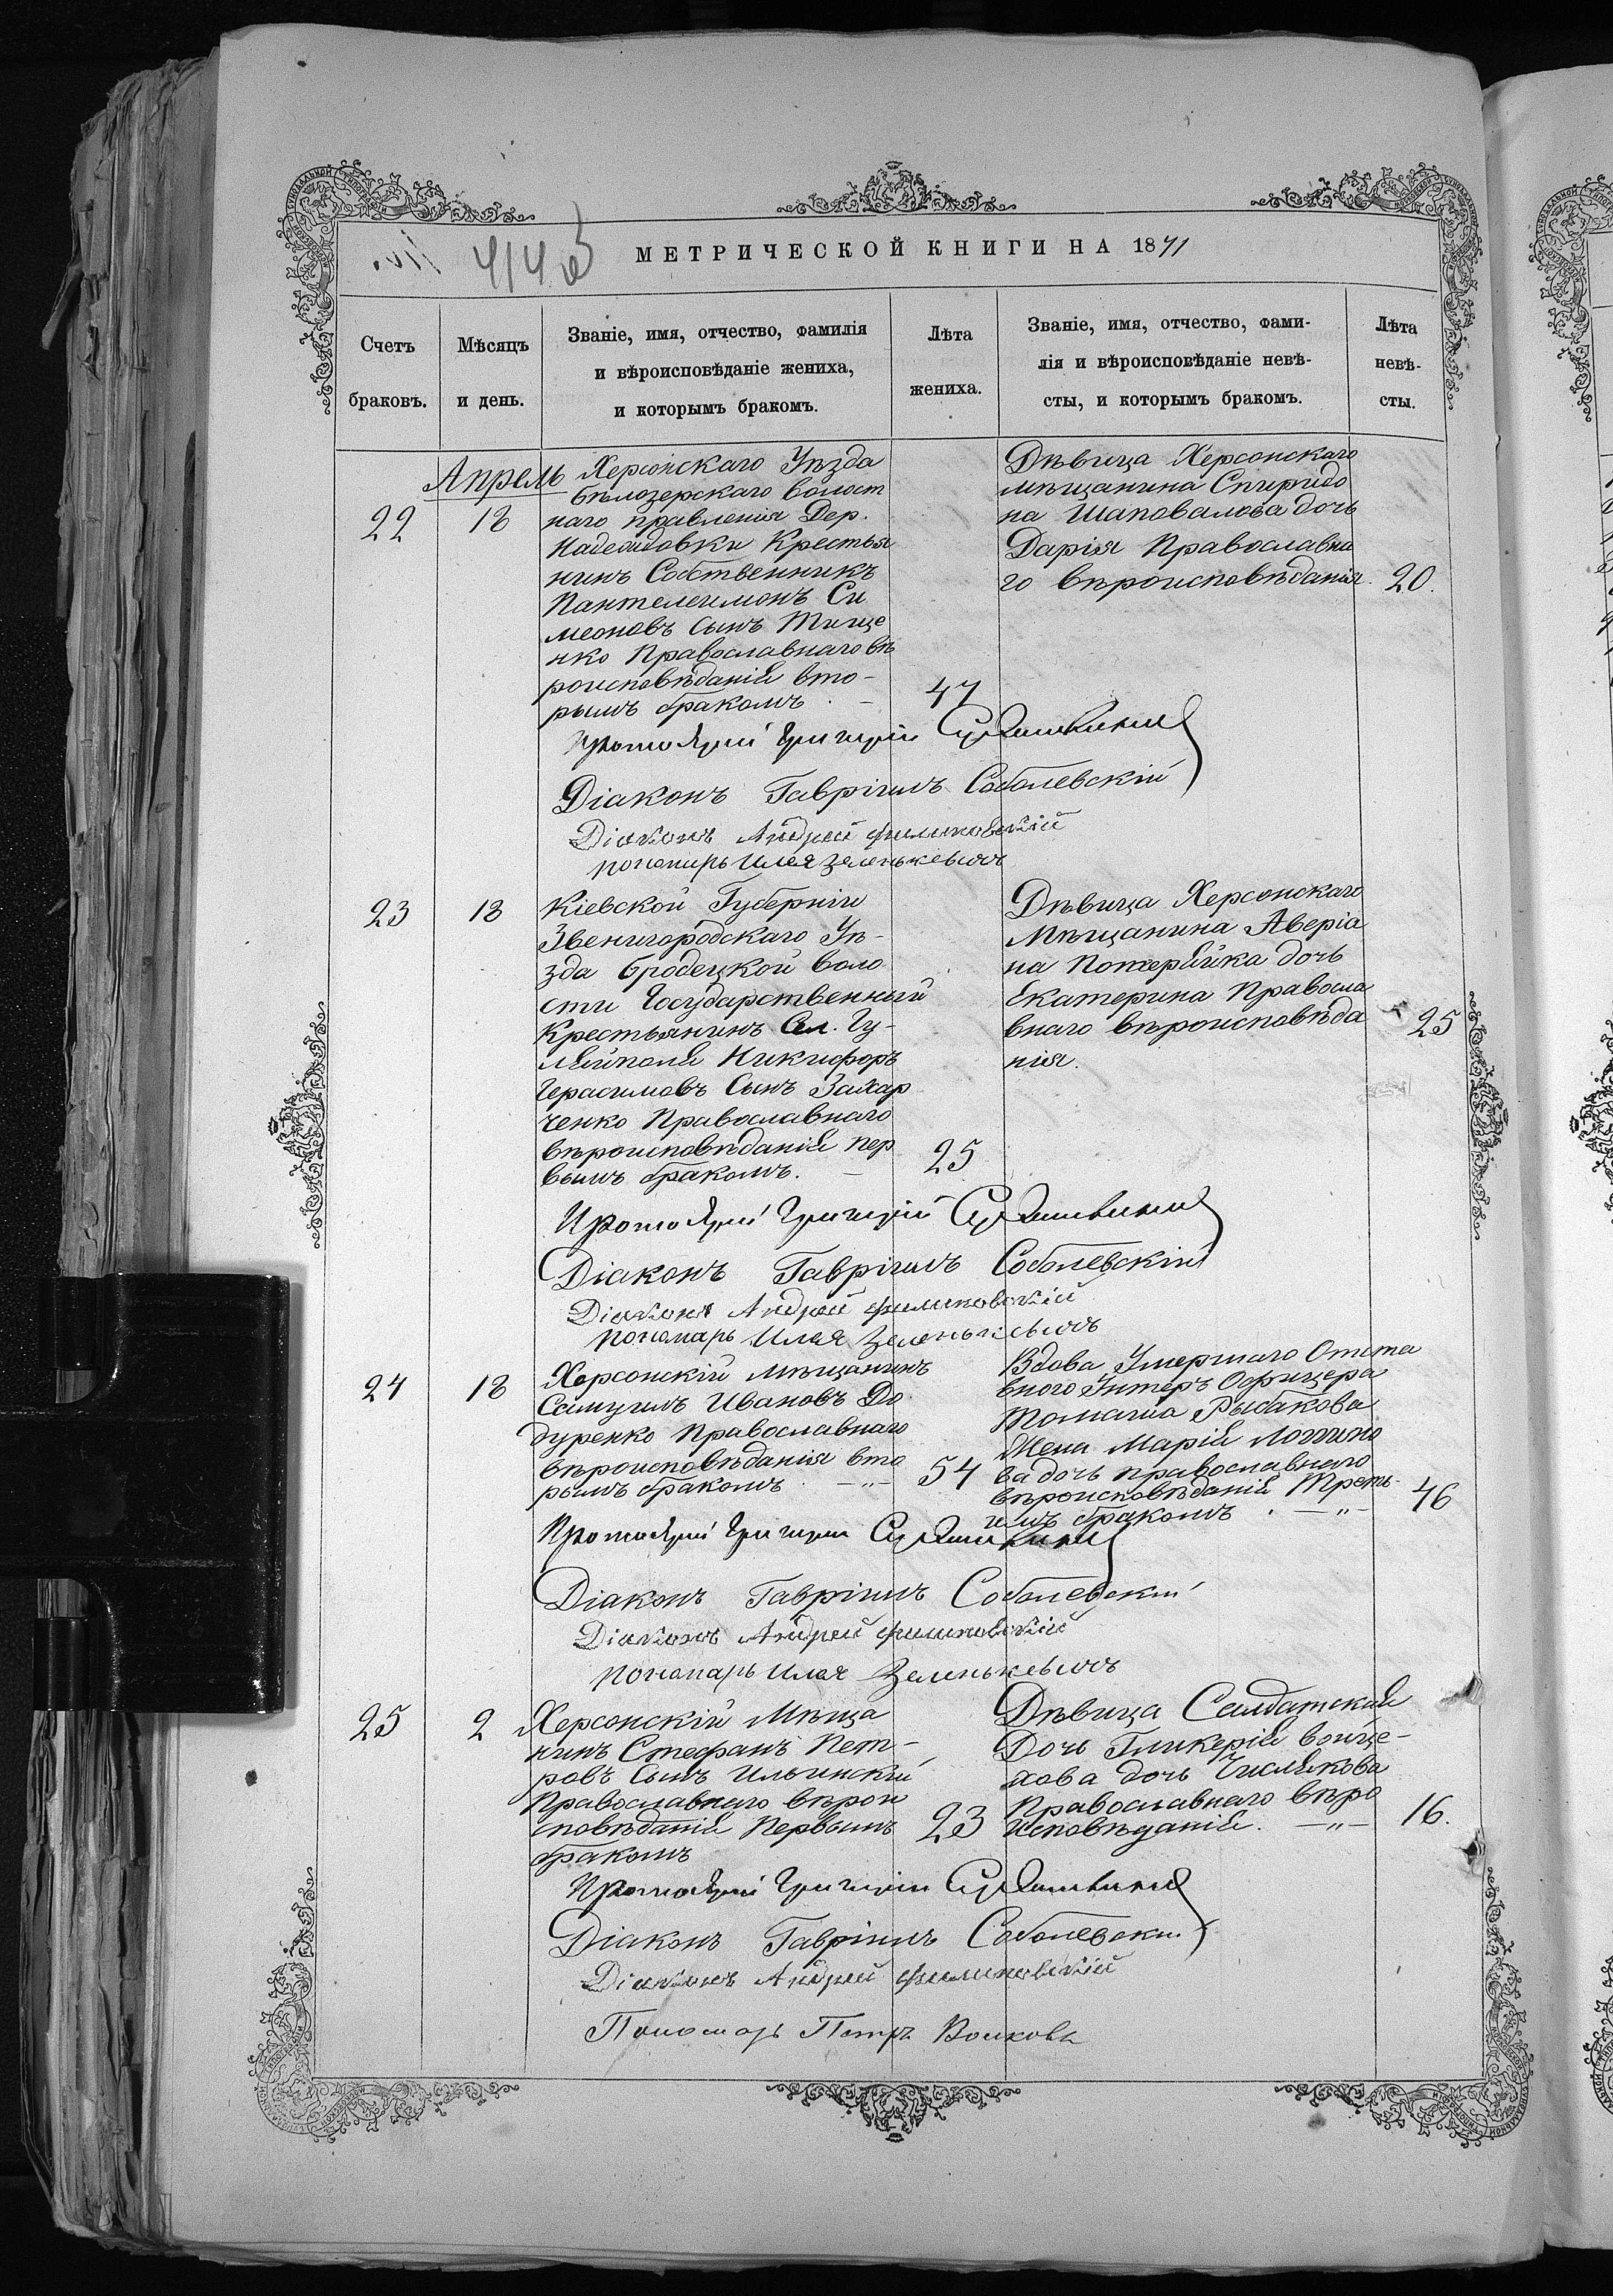 414 об
МЕТРИЧЕСКОЙ КНИГИ НА 1871
Счетъ
браковъ.
Мѣсяцъ
и день.
Званіе, имя, отчество, фамилія
и вѣроисповѣданіе жениха,
и которымъ бракомъ.
Лѣта
жениха.
Званіе, имя, отчество, фами-
лія и вѣроисповѣданіе невѣ-
сты, и которымъ бракомъ.
Лѣта
невѣ-
сты.
Апрель
22
18
Херсонскаго Уѣзда
бѣлозерскаго волост
наго правленія Дер.
Надеждовки Крестья
нинъ Собственникъ
Пантелеимонъ Си
меоновъ Сынъ Тище
нко Православнаго вѣ
роисповѣданія вто-
рымъ бракомъ. —
47
Дѣвица Херсонскаго
мѣщанина Спиридо
на Шаповалова дочь
Дарія Православна
го вѣроисповѣданія.
20.
Протоіерей Григорій
Діаконъ Гавріилъ Соболевскій
Діаконъ Андрей Филиповскій
пономарь Илья Зеленькевичъ
23
18
Кіевской Губерніи
Звенигородскаго Уѣ-
зда бродецкой воло
сти Государственный
Крестьянинъ Сел. Гу-
ляйполя Никифоръ
Герасимовъ Сынъ Захар
ченко Православнаго
вѣроисповѣданія пер
вымъ бракомъ. —
25
Дѣвица Херсонскаго
Мѣщанина Аверіа
на дочь
Екатерина Правосла
внаго вѣроисповѣда
нія.
25
Протоіерей Григорій
Діаконъ Гавріилъ Соболевскій
Діаконъ Андрей Филиповскій
пономарь Илья Зеленькевичъ
24
18
Херсонскій мѣщанинъ
Самуилъ Ивановъ До
дуренко Православнаго
вѣроисповѣданія вто
рымъ бракомъ. —„—
54
Вдова Умершаго Отста
вного Унтеръ Офицера
Томаша Рыбакова
Жена Марія Логино
ва дочь православнаго
вѣроисповѣданія Треть-
имъ бракомъ. —„—
46
Протоіерей Григорій
Діаконъ Гавріилъ Соболевскій
Діаконъ Андрей Филиповскій
пономарь Илья Зеленькевичъ
25
2
Херсонскій Мѣща
нинъ Стефанъ Пет-
ровъ Сынъ Ильинскій
Православнаго вѣрои
сповѣданія Первымъ
бракомъ
23
Дѣвица Салдатская
Дочь Гликерія воице-
хова дочь Числякова
Православнаго вѣро
исповѣданія. —„—
16.
Протоіерей Григорій
Діаконъ Гавріилъ Соболевскій
Діаконъ Андрей Филиповскій
Пономарь Петръ Волковъ